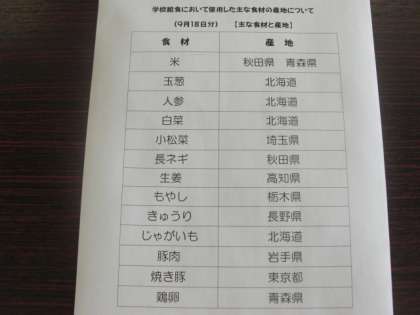 学校給食において使用した主な食材の産地について
(9月18日分) 【主な食材と産地】
食材 産地
米 秋田県 青森県
玉葱 北海道
人参 北海道
白菜 北海道
小松菜 埼玉県
長ネギ 秋田県
生姜 高知県
もやし 栃木県
きゅうり 長野県
じゃがいも 北海道
豚肉 岩手県
焼き豚 東京都
鶏卵 青森県